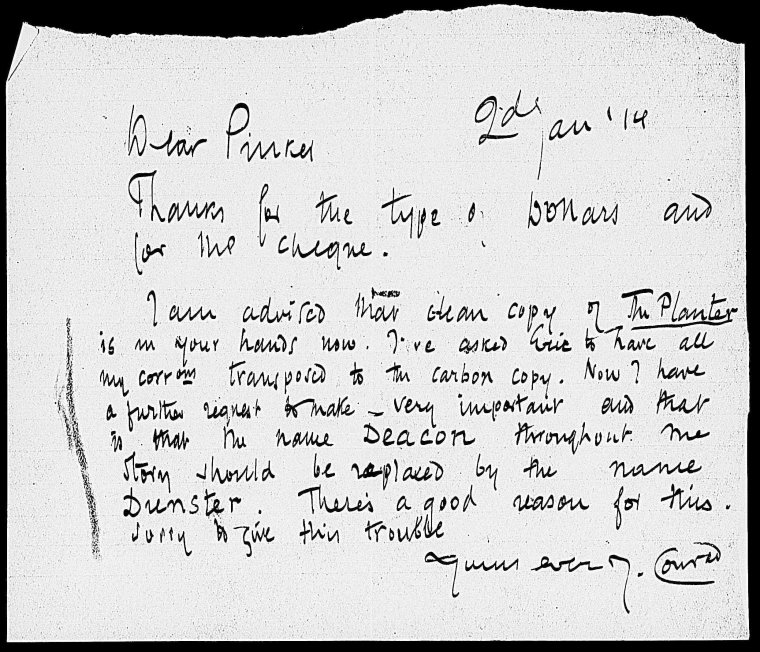 2d Jan '14
Dear Pinker
Thanks for the type of Dollars and
for the cheque.
I am advised that clean copy of The Planter
is in your hands now. I've asked Eric to have all
my corrons transposed to the carbon copy. Now I have
a further request to make – very important and that
is that the name Deacon throughout the
story should be replaced by the name
Dunster. There's a good reason for this.
Sorry to give this trouble
Yours ever J. Conrad